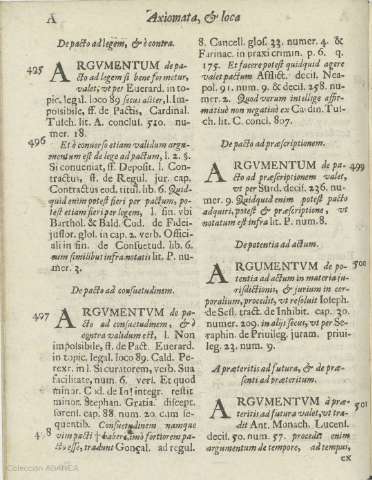 A Axiomata, & loca
De pacto ad legem, & è contra.
495 ARGVMENTVM de pa-
cto ad legem si bene formetur,
valet, vt per Euerard. in to-
pic. legal. loco 89 secus aliter, l. Im-
poisibile, ff. de Pactis, Cardinal.
Tusch. lit. A. conclus. 510. nu-
mer. 18.
496 Et è conuerso etiam validum argu-
mentum est de lege ad pactum, l. 2. §.
Si conueniat, ff. Deposit. l. Con-
tractus, ff. de Regul. jur. cap.
Contractus eod. titul. lib. 6. Quid-
quid enim potest fieri per pactum, po-
test etiam fieri per legem, l. fin. vbi
Barthol. & Bald. Cod. de Fidei-
jussor. glos. in cap. 2. verb. Offici-
ali in fin. de Consuetud. lib. 6.
cum similibus infra notatis lit. P. nu-
mer. 3.
De pacto ad consuetudinem.
497 ARGVMENTVM de pa-
cto ad consuetudinem, & è
contra validum est, l. Non
impossibile, ff. de Pact. Euerard.
in topic. legal. loco 89. Cald. Pe-
reyr. in l. Si curatorem, verb. Sua
facilitate, num. 6. vers. Et quod
minor. Cod. de In integr. restit.
minor. Stephan. Gratia. discept.
forens. cap. 88. num. 20. cum se-
quentib. Consuetudinem namque
498 vim pacti † habere, imò fortiorem pa-
cto esse, tradunt Gonçal. ad regul.
8. Cancell. glos. 33. numer. 4. &
Farinac. in praxi crimin. p. 6. q.
175. Et facere potest quidquid agere
valet pactum Afflict. decis. Nea-
pol. 91. num. 9. & decis. 258. nu-
mer. 2. Quod verum intellige affir-
matiuè non negatiuè ex Cardin. Tus-
ch. lit. C. concl. 807.
De pacto ad præscriptionem.
ARGVMENTVM de pa- 499
cto ad præscriptionem valet,
vt per Surd. decis. 236. nu-
mer. 9. Quidquid enim potest pacto
adquiri, potest & præscriptione, vt
notatum est infra lit. P. num. 8.
De potentia ad actum.
ARGUMENTVM de po- 500
tentia ad actum in materia ju-
risdictionis, & jurium in cor-
poralium, procedit, vt resoluit Ioseph.
de Sess. tract. de Inhibit. cap. 30.
numer. 209. in alijs secus, vt per Se-
raphin. de Priuileg. juram. priui-
leg. 23. num. 9.
A præteritis ad futura, & de præ-
senti ad præteritum.
ARGVMENTVM à præ- 501
teritis ad futura valet, vt tra-
dit Ant. Monach. Lucens.
decis. 50. num. 57. procedit enim
argumentum de tempore, ad tempus,
ex
Colección AGANEA